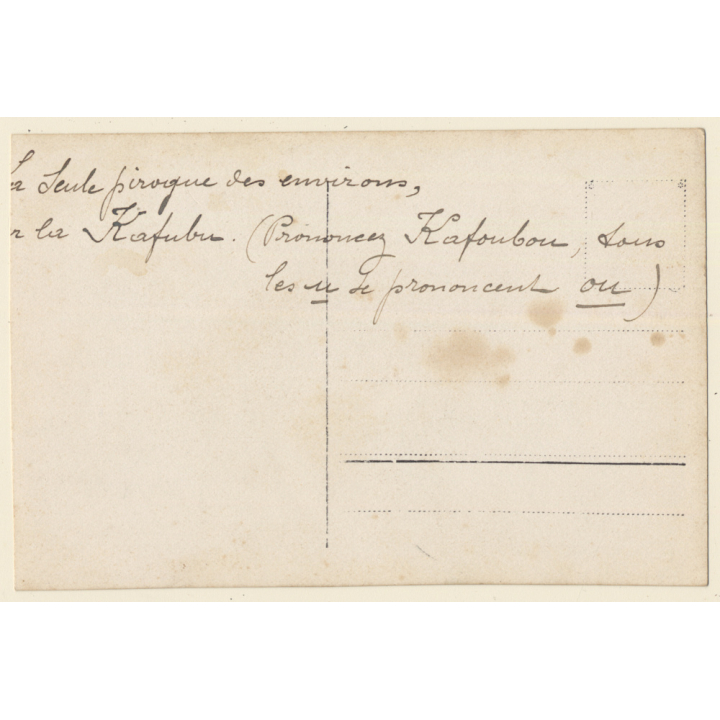 La Seule pirogue des environs,
r la Kafubu. (Prononcez Kafoubou, tous
les u se prononcent ou)